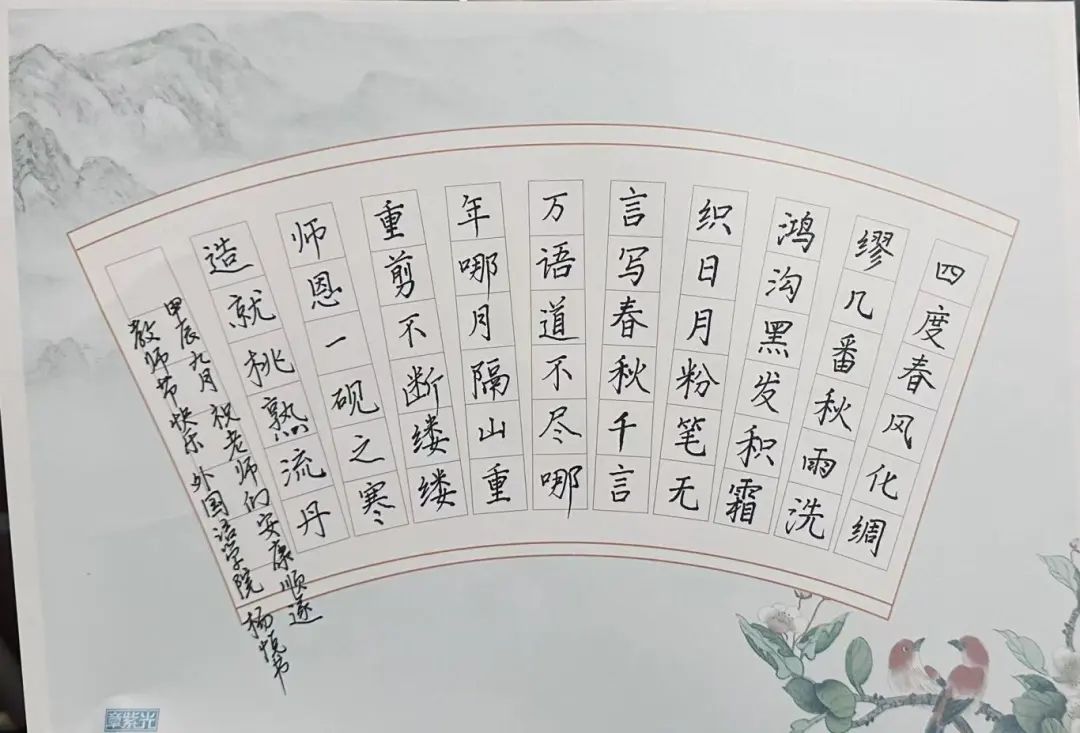 四度春风化绸
缪几番秋雨洗
鸿沟黑发积霜
织日月粉笔无
言写春秋千言
万语道不尽哪
年哪月隔山重
重剪不断缕缕
师恩一砚之寒
造就桃熟流丹
甲辰九月祝老师们安康顺遂
教师节快乐 外国语学院 杨悦
章紫光